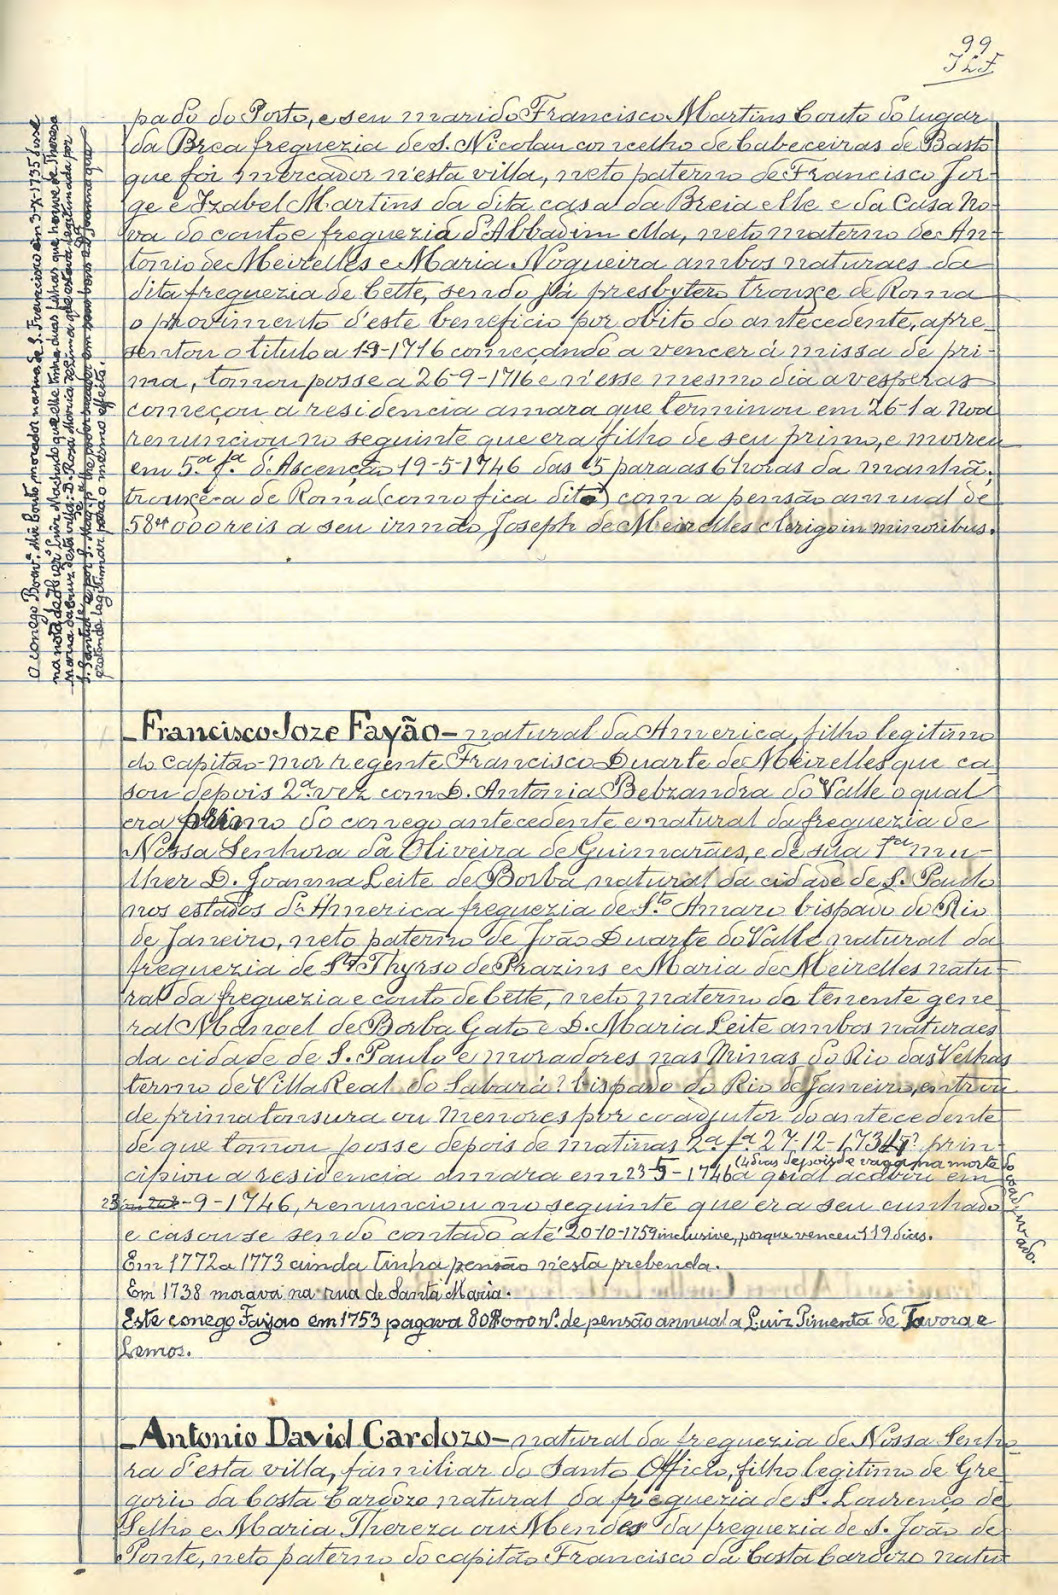 99
pado do Porto, e seu marido Francisco Martins Couto do lugar
da Brea freguezia de S. Nicolau concelho de Cabeceiras de Basto
que foi mercador n'esta villa, neto paterno de Francisco Jor-
ge e Izabel Martins da dita casa da Breia elle e da Casa No-
va do couto e freguezia d'Abbadim ella, neto materno de An-
tonio de Meirelles e Maria Nogueira ambos naturaes da
dita freguezia de Cette, sendo já presbytero trouxe de Roma
o provimento d'este beneficio por obito do antecedente, apre-
sentou o titulo a 19-1716 começando a vencer á missa de pri-
ma, tomou posse a 26-9-1716 e n'esse mesmo dia a vesperas
começou a residencia amara que terminou em 26-1 a Noa
renunciou no seguinte que era filho de seu primo, e morreu
em 5.ª f.ª d'Ascenção 19-5-1746 das 5 para as 6 horas da manhã;
trouxe-a de Roma (como fica dito) com a pensão annual de
58$000 reis a seu irmão Joseph de Meirelles clerigo in minoribus.
O conego Boav.ª dio Couto, morador na rua de S. Francisco em 3-X-1735 disse
na nota de que elle tinha duas filhas que houve de Thereza
Maria da Cruz desta villa: D. Rosa Maria
pretende legitimar para o mesmo effeito.
-Francisco Joze Fayão- natural da America, filho legitimo
do capitão-mor regente Francisco Duarte de Meirelles que ca-
sou depois 2.ª vez com D. Antonia Bebzandra do Valle o qual
era primo do conego antecedente e natural da freguezia de
Nossa Senhora da Oliveira de Guimarães, e de sua 1ª mu-
lher D. Joanna Leite de Borba natural da cidade de S. Paulo
nos estados d'America freguezia de S.to Amaro bispado do Rio
de Janeiro, neto paterno de João Duarte do Valle natural da
freguezia de S.to Thyrso de Prazins e Maria de Meirelles natu-
ral da freguezia e couto de Cette, neto materno do tenente gene-
ral Manoel de Borba Gato e D. Maria Leite ambos naturaes
da cidade de S. Paulo e moradores nas Minas do Rio das Velhas
termo de Villa Real do Sabará? bispado do Rio de Janeiro, entrou
de prima tonsura ou menores por coadjutor do antecedente
de que tomou posse depois de matinas 2.ª f.ª 27-12-1734 prin-
cipiou a residencia amara em 23-5-1746 (4 dias depois de vaga na morte do coadjuvado.) a qual acabou em
23-9-1746, renunciou no seguinte que era seu cunhado
e casou-se sendo contado até 20-10-1759 inclusive, porque venceu 119 dias.
Em 1772 a 1773 ainda tinha pensão n'esta prebenda.
Em 1738 morava na rua de Santa Maria.
Este conego Fayão em 1753 pagava 80$000 rs. de pensão annual a Luiz Pimenta de Tavora e
Lemos.
-Antonio David Cardozo- natural da freguezia de Nossa Senho-
ra d'esta villa, familiar do Santo Officio, filho legitimo de Gre-
gorio da Costa Cardozo natural da freguezia de S. Lourenço de
Selho e Maria Thereza ou Mendes da freguezia de S. João de
Ponte, neto paterno do capitão Francisco da Costa Cardozo natu-